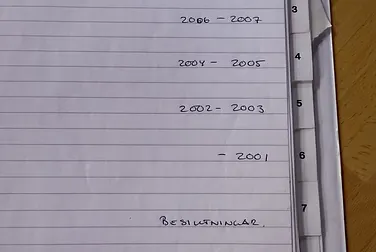 3
2006 - 2007
4
2004 - 2005
5
2002 - 2003
6
- 2001
7
BESLUTNINGAR.